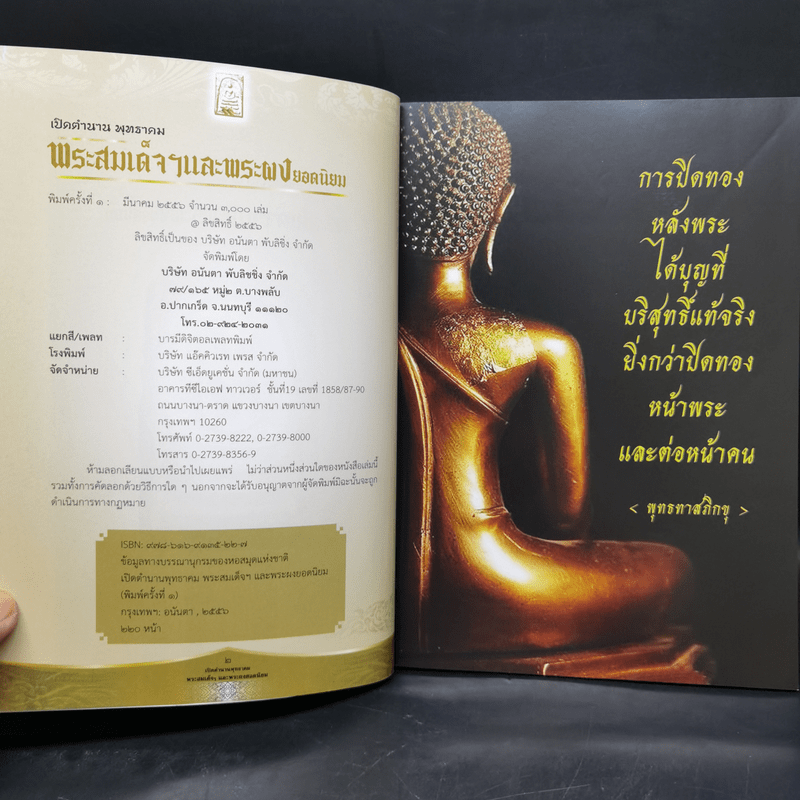 เปิดตำนาน พุทธาคม
พระสมเด็จฯและพระผงยอดนิยม
พิมพ์ครั้งที่ ๑ : มีนาคม ๒๕๕๖ จำนวน ๓,๐๐๐ เล่ม
@ ลิขสิทธิ์ ๒๕๕๖
ลิขสิทธิ์เป็นของ บริษัท อนันตา พับลิชิ่ง จำกัด
จัดพิมพ์โดย
บริษัท อนันตา พับลิชชิ่ง จำกัด
๗๙/๑๖๕ หมู่๒ ต.บางพลับ
อ.ปากเกร็ด จ.นนทบุรี ๑๑๑๒๐
โทร.๐๒-๙๒๔-๒๐๓๑
แยกสี/เพลท : บารมีดิจิตอลเพลทพิมพ์
โรงพิมพ์ : บริษัท แอ๊คคิวเรท เพรส จำกัด
จัดจำหน่าย : บริษัท ซีเอ็ดยูเคชั่น จำกัด (มหาชน)
อาคารทีซีไอเอฟ ทาวเวอร์ ชั้นที่19 เลขที่ 1858/87-90
ถนนบางนา-ตราด แขวงบางนา เขตบางนา
กรุงเทพฯ 10260
โทรศัพท์ 0-2739-8222, 0-2739-8000
โทรสาร 0-2739-8356-9
ห้ามลอกเลียนแบบหรือนำไปเผยแพร่ ไม่ว่าส่วนหนึ่งส่วนใดของหนังสือเล่มนี้
รวมทั้งการคัดลอกด้วยวิธีการใด ๆ นอกจากจะได้รับอนุญาตจากผู้จัดพิมพ์มิฉะนั้นจะถูก
ดำเนินการทางกฏหมาย
ISBN: ๙๗๘-๖๑๖-๙๑๓๕-๒๒-๗
ข้อมูลทางบรรณานุกรมของหอสมุดแห่งชาติ
เปิดตำนานพุทธาคม พระสมเด็จฯ และพระผงยอดนิยม
(พิมพ์ครั้งที่ ๑)
กรุงเทพฯ: อนันตา , ๒๕๕๖
๒๒๐ หน้า
๒
เปิดตำนานพุทธาคม
พระสมเด็จฯ และพระผงยอดนิยม
การปิดทอง
หลังพระ
ได้บุญที่
บริสุทธิ์แท้จริง
ยิ่งกว่าปิดทอง
หน้าพระ
และต่อหน้าคน
< พุทธทาสภิกขุ >